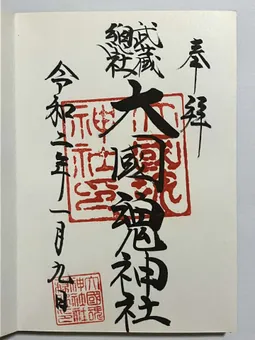 奉拝
武蔵
總社
大國魂神社
令和二年一月九日
大國魂
神社印